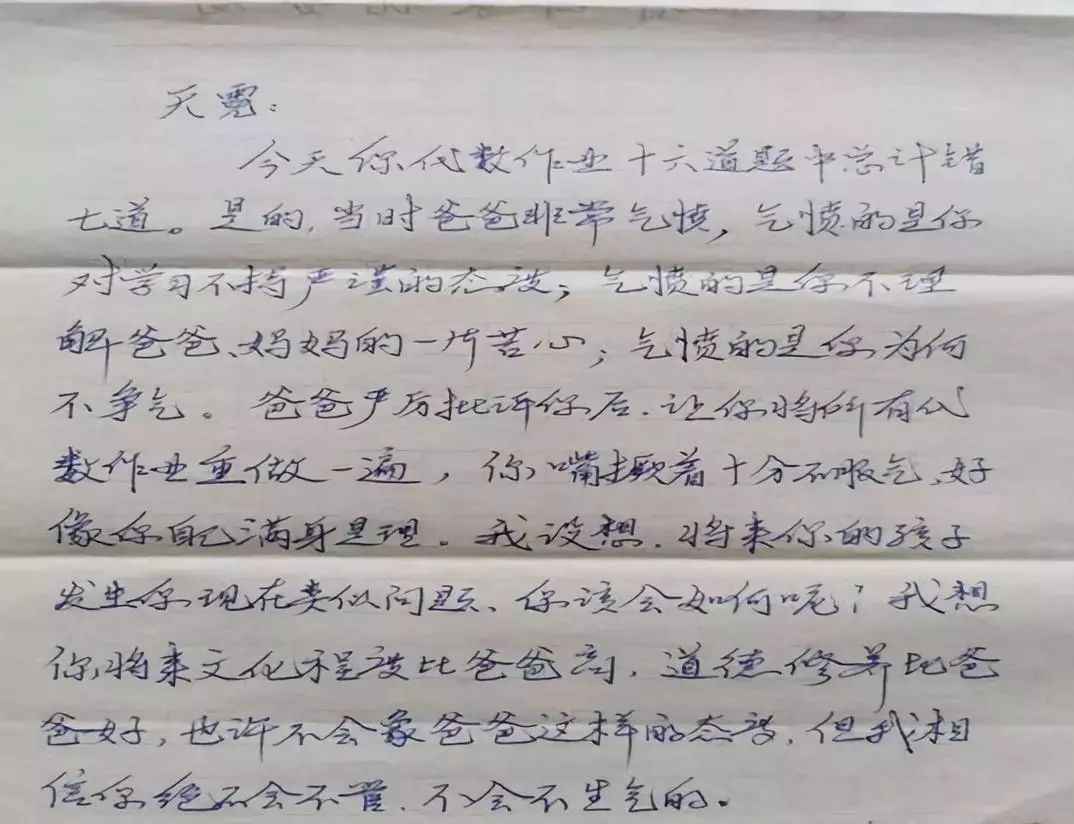 天霓:
今天你代数作业十六道题中总计错
七道。是的,当时爸爸非常气愤,气愤的是你
对学习不持严谨的态度;气愤的是你不理
解爸爸、妈妈的一片苦心;气愤的是你为何
不争气。爸爸严厉批评你后,让你将所有代
数作业重做一遍,你嘴撅着十分不服气,好
像你自己满身是理。我设想,将来你的孩子
发生你现在类似问题,你该会如何呢?我想
你将来文化程度比爸爸高,道德修养比爸
爸好,也许不会象爸爸这样的态度,但我相
信你绝不会不管,不会不生气的。